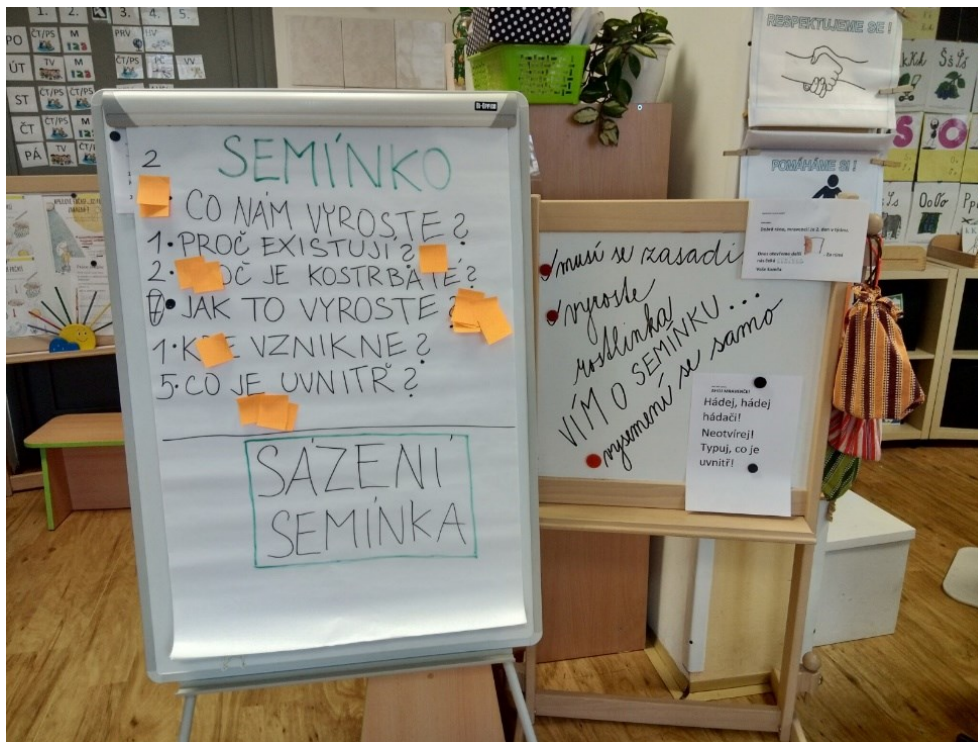 1. 2. 3. 4. 5.
PO ČT/PS M PRV HV
123
ÚT TV M ČT/PS PČ VV
123
ST ČT/PS ČT/PS
ČT ČT/PS M
PÁ TV M ČT/PS
SEMÍNKO
2
CO NÁM VYROSTE?
1. PROČ EXISTUJÍ?
2. JE KOSTRBATÉ?
7 JAK TO VYROSTE
1. VZNIKNE?
5. CO JE UVNITŘ?
SÁZENÍ
SEMÍNKA
musí se zasadi
vyroste
rostlinka!
VÍM O SEMÍNKU...
vysemení se samo
Hádej, hádej
hádači!
Neotvírej!
Typuj, co je
uvnitř!
RESPEKTUJEME SE!
POMÁHÁME SI!
Šš
S O
Oo